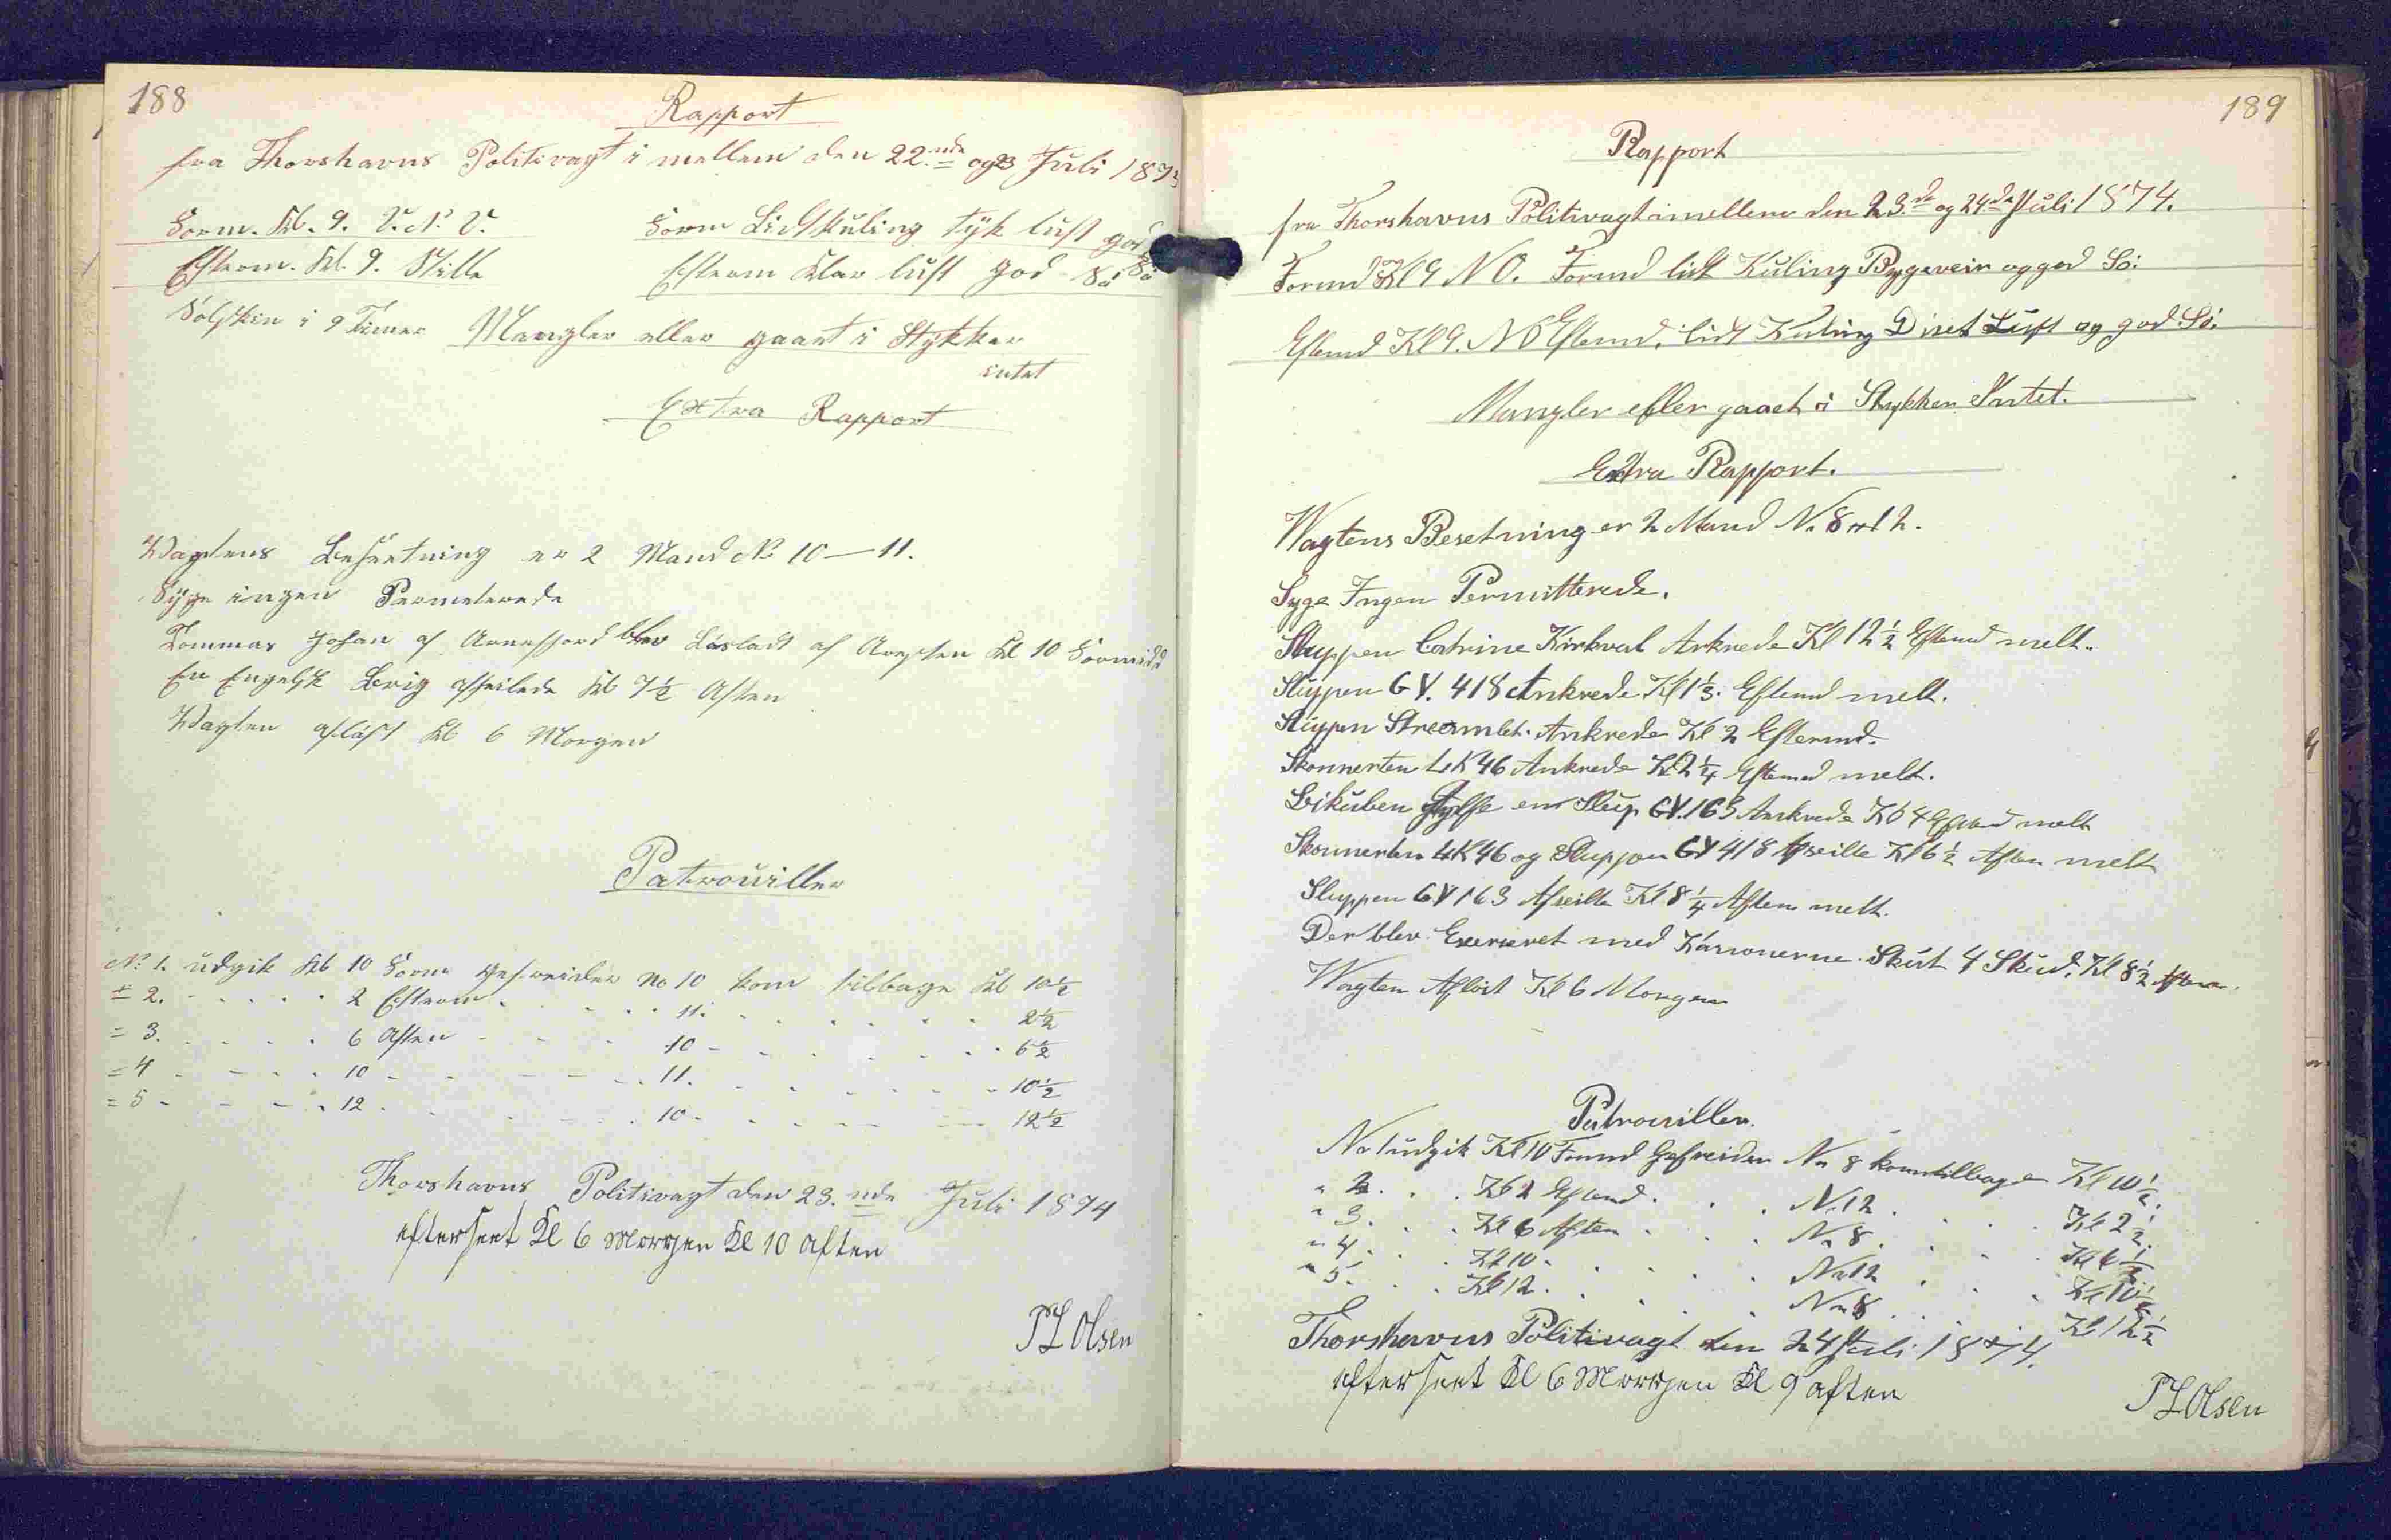 188
Rapport
fra Thorshavns Politivagt i mellem den 22.nde og 23 Juli 187
Form. Kl. 9. V. N. V. Form Lidt Kuling tyk luft god Sö
Efterm. Kl. 9. Stille Efterm Klar luft god Sö
Solskin i 9 Timer Mangler eller gaaet i Stykker
intet
Extra Rapport
Wagtens Besætning er 2 Mand No 10 — 11.
Syge ingen Permeterede
Tommas Johan af Arnefjord blev Lösladt af Aresten Kl 10 Formidd
En Engelsk Brig afseilede Kl 7½ Aften
Wagten aflöst Kl 6 Morgen
Patrouiller
No 1. udgik Kl 10 Form Gefreider No 10 kom tilbage Kl 10½
= 2. 2 Efterm 11. 2½
= 3. 6 Aften 10 6½
= 4 10 11. 10½
= 5 12 10 12½
Thorshavns Politivagt den 23.nde Juli 1874
efterseet Kl 6 Morgen Kl 10 aften
P L Olsen
189
Rapport
fra Thorshavns Politivagt imellem den 23.de og 24de Juli 1874.
Formd Kl 9 NO. Formd lidt Kuling Bygeveir og god Sö.
Eftemd Kl 9. NO Eftemd. lidt Kuling Diset Luft og god Sö.
Mangler eller gaaet i Stykker Intet.
Extra Rapport.
Wagtens Besetning er 2 Mand No 8 12.
Syge Ingen Permitterede.
Sluppen Catrine Kirkval Ankrede Kl 12½ Eftemd melt.
Sluppen GY. 418 Ankrede Kl 1⅓. Eftemd melt.
Sluppen Ankrede Kl 2 Eftermd.
Skonnerten LK 46 Ankrede Kl 2¼ Eftemd melt.
Bikuben en Slup GY. 163 Ankrede Kl 4 Eftemd melt
Skonnerten LK 46 og Sluppen GY 418 Afseilte Kl 6½ Aften melt
Sluppen GY 163 Afseilte Kl 8¼ Aften melt.
Der blev Exerseret med Kannonerne. Skut 4 Skud. Kl 8½ Aften.
Wagten Aflöst Kl 6 Morgen
Patrouiller.
No 1 udgik Kl 10 Formd Gefreider No 8 kom tilbage Kl 10½.
" 2. Kl 2 Eftemd. No 12. Kl 2½
" 3. Kl 6 Aften No 8. Kl 6½
" 4. Kl 10. No 12 Kl 10½
" 5. Kl 12. No 8 Kl 12½
Thorshavns Politivagt den 24 Juli 1874.
efterseet Kl 6 Morgen Kl 9 aften
P L Olsen